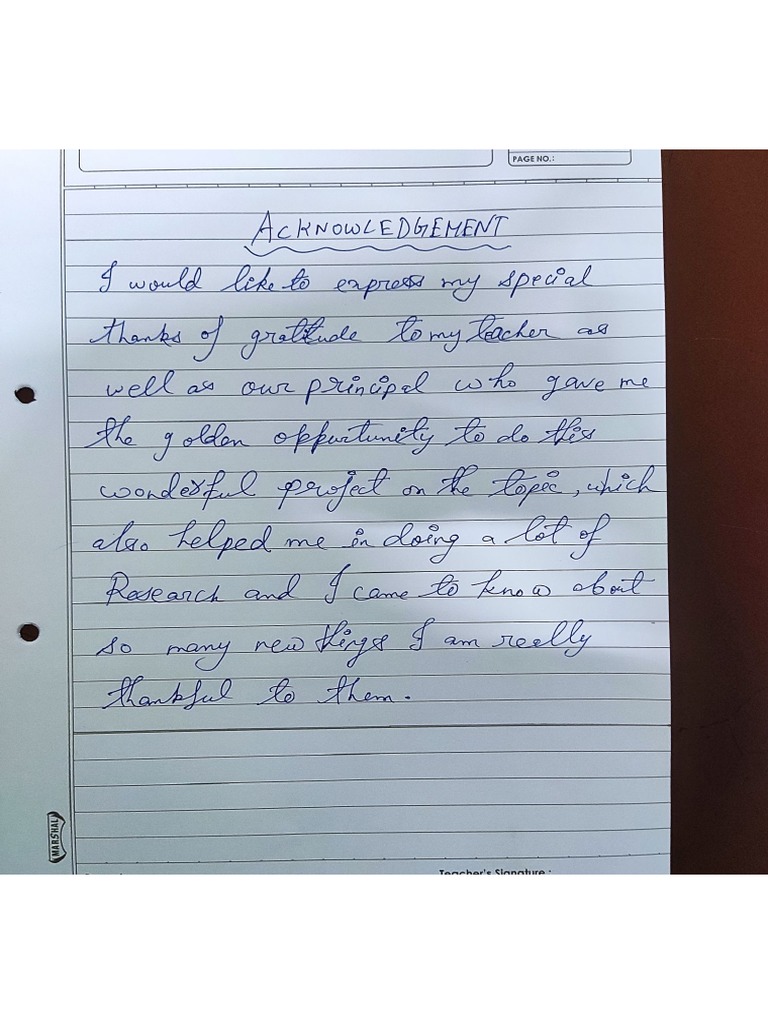 PAGE NO.:
ACKNOWLEDGEMENT
I would like to express my special
thanks of gratitude to my teacher as
well as our principal who gave me
the golden oppurtunity to do this
wonderful project on the topic, which
also helped me in doing a lot of
Research and I came to know about
so many new things I am really
thankful to them.
MARSHAL
Teacher's Signature :